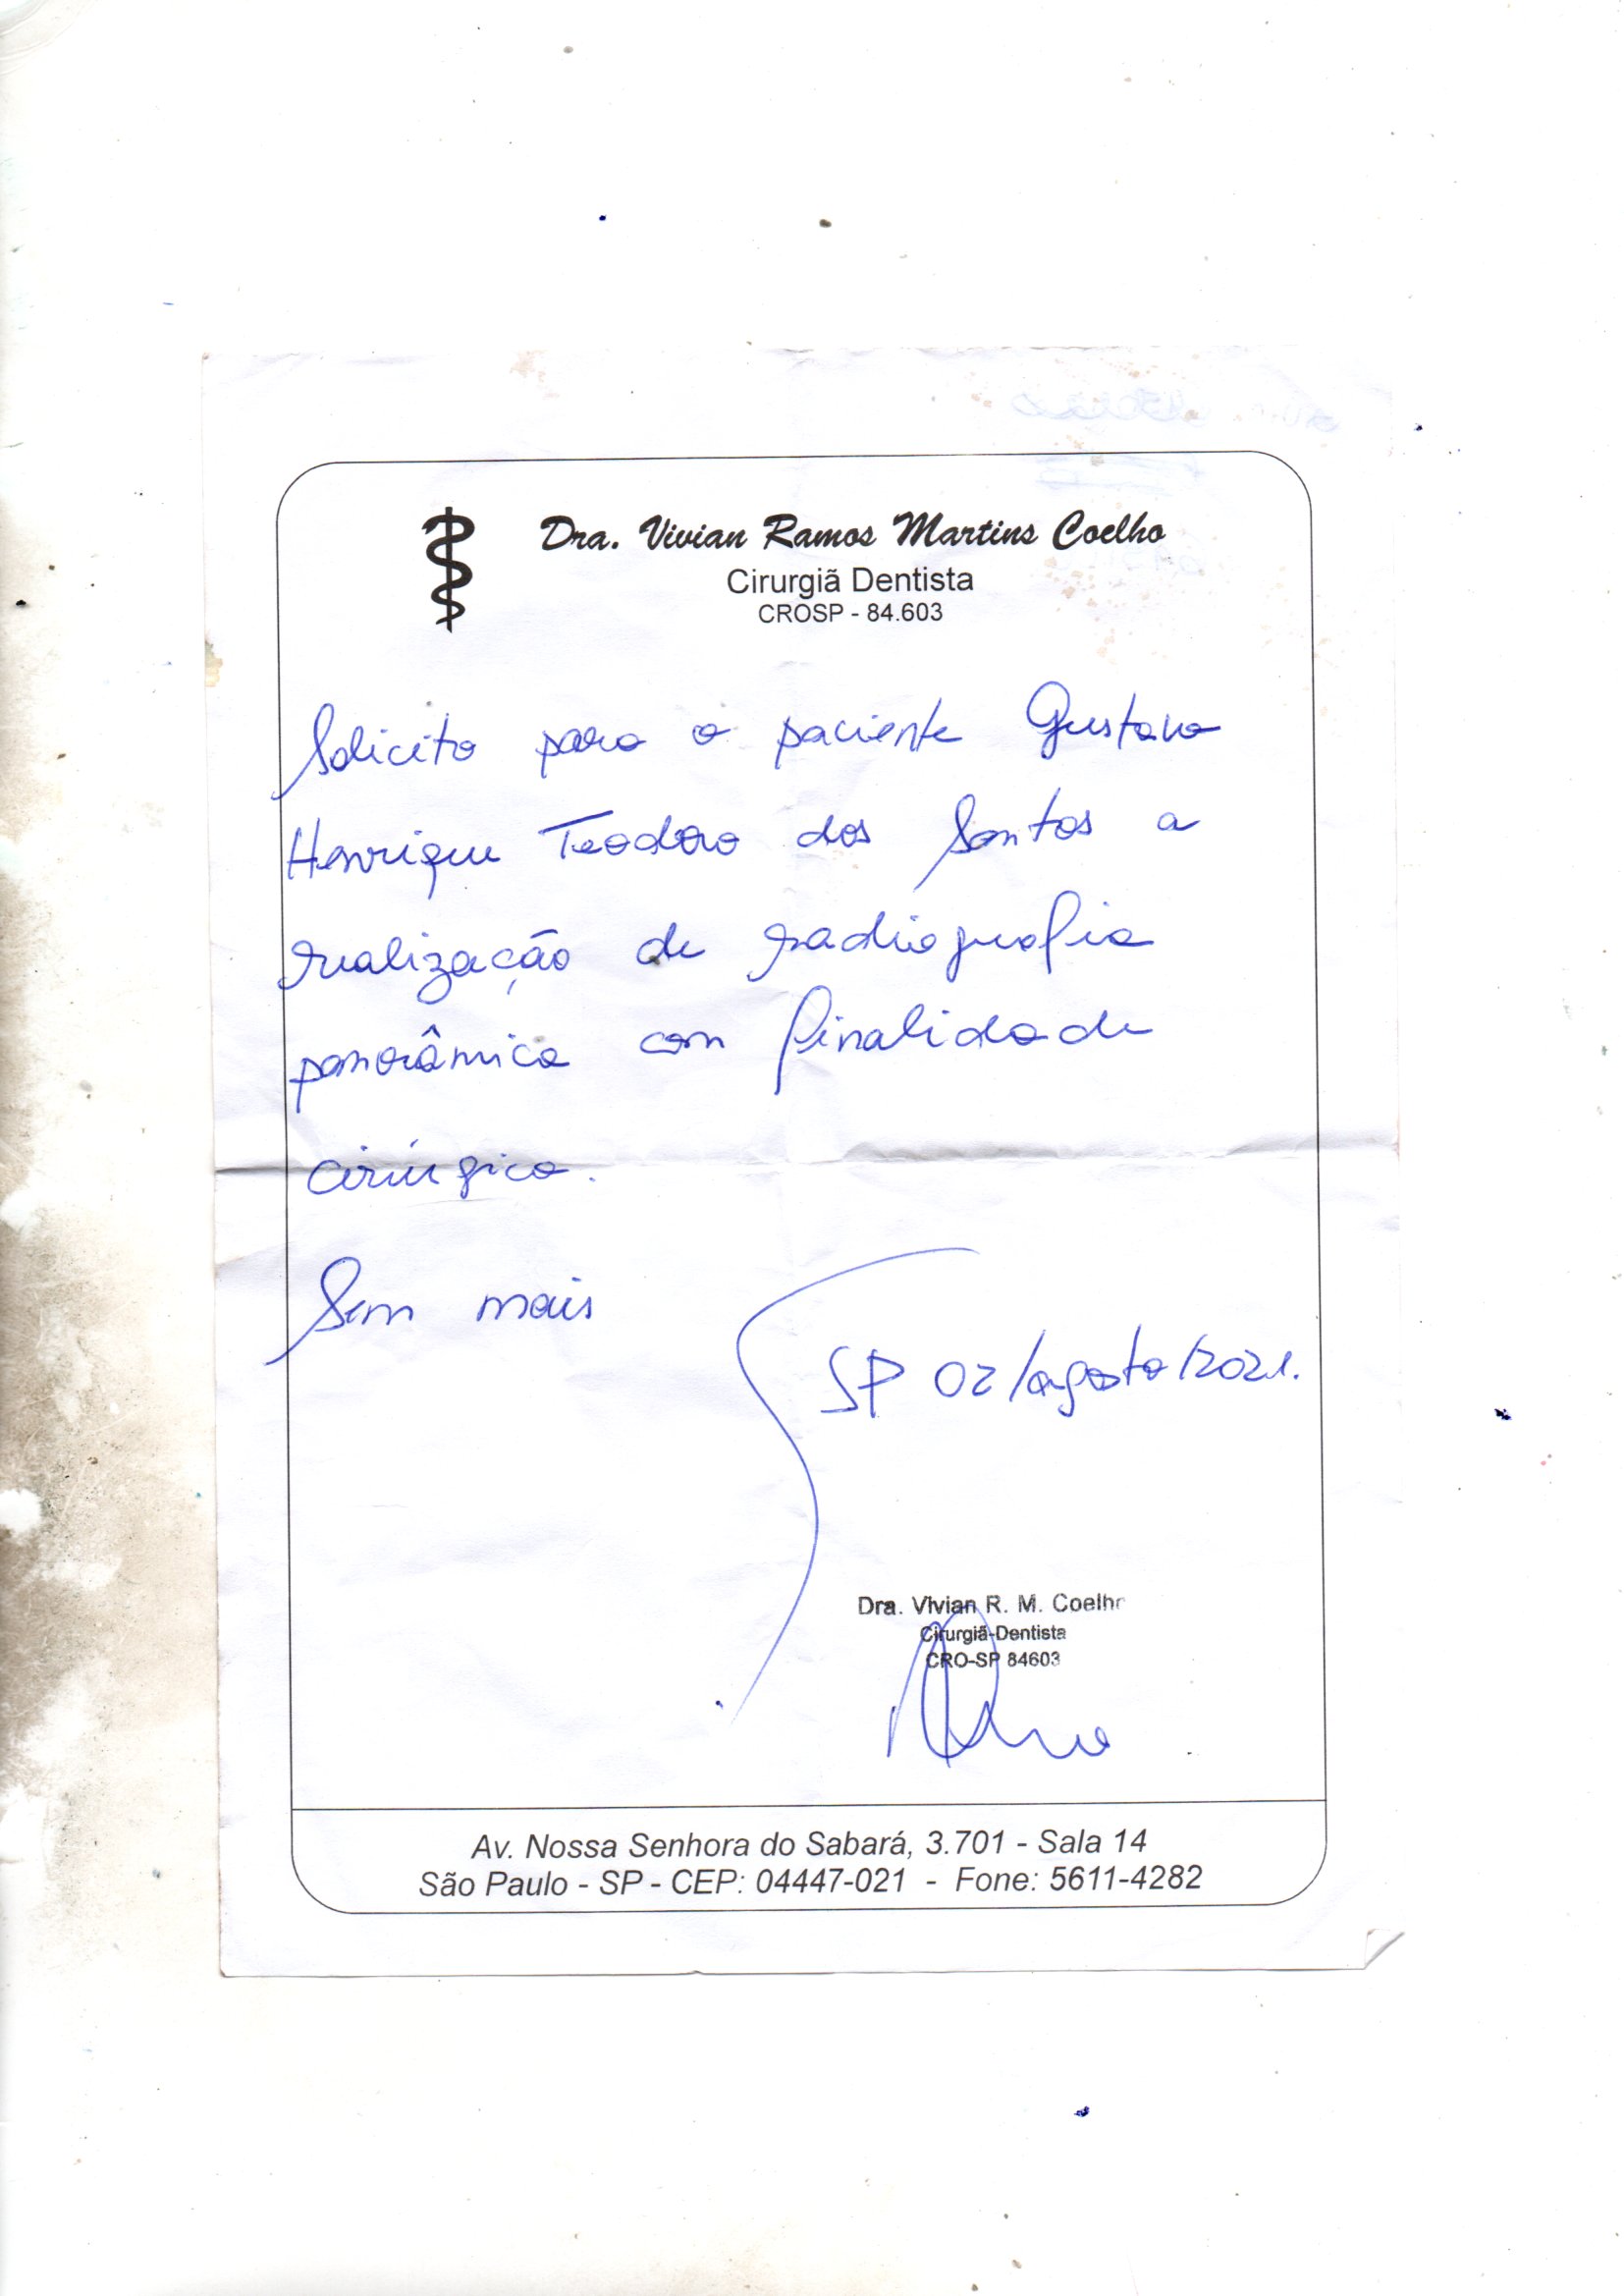 Dra. Vivian Ramos Martins Coelho
Cirurgiã Dentista
CROSP - 84.603
Solicito para o paciente Gustavo
Henrique Teodoro dos Santos a
realização de radiografia
panorâmica com finalidade
cirúrgica.
Sem mais
SP 02/agosto/2021.
Dra. Vivian R. M. Coelho
Cirurgiã-Dentista
CRO-SP 84603
Av. Nossa Senhora do Sabará, 3.701 - Sala 14
São Paulo - SP - CEP: 04447-021 - Fone: 5611-4282